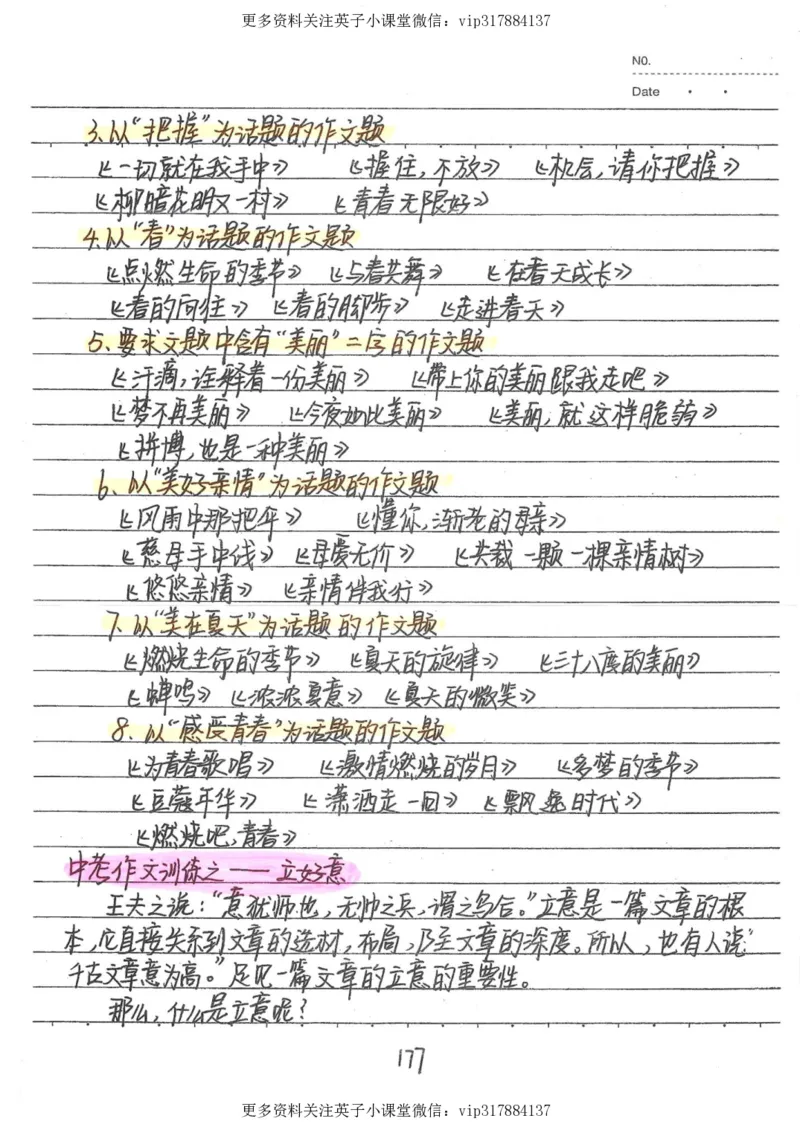 更多资料关注英子小课堂微信：vip317884137
NO.
Date
3、以“把握”为话题的作文题
《一切就在我手中》 《握住，不放》 《机会，请你把握》
《柳暗花明又一村》 《青春无限好》
4、以“春”为话题的作文题
《点燃生命的季节》 《与春共舞》 《在春天成长》
《春的向往》 《春的脚步》 《走进春天》
5、要求文题中含有“美丽”二字的作文题
《汗滴，诠释着一份美丽》 《带上你的美丽跟我走吧》
《梦不再美丽》 《今夜如此美丽》 《美丽，就这样脆弱》
《拼博，也是一种美丽》
6、以“美好亲情”为话题的作文题
《风雨中那把伞》 《懂你，渐老的母亲》
《慈母手中线》 《母爱无价》 《共栽一颗一棵亲情树》
《悠悠亲情》 《亲情伴我行》
7、以“美在夏天”为话题的作文题
《燃烧生命的季节》 《夏天的旋律》 《三十八度的美丽》
《蝉鸣》 《浓浓夏意》 《夏天的微笑》
8、以“感受青春”为话题的作文题
《为青春歌唱》 《激情燃烧的岁月》 《多梦的季节》
《豆蔻年华》 《潇洒走一回》 《飘逸时代》
《燃烧吧，青春》
中考作文训练之——立好意
王夫之说：“意犹师也，无帅之兵，谓之乌合。”立意是一篇文章的根
本，它直接关系到文章的选材，布局，乃至文章的深度。所以，也有人说“
千古文章意为高。”足见一篇文章的立意的重要性。
那么，什么是立意呢？
177
更多资料关注英子小课堂微信：vip317884137